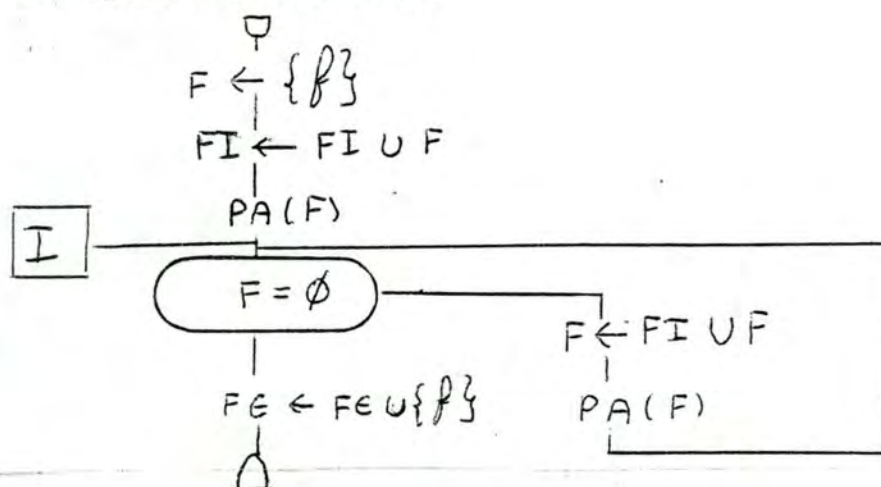 F ← {f}
FI ← FI ∪ F
PA(F)
I
F = ∅
F ← FI ∪ F
FE ← FE ∪ {f}
PA(F)